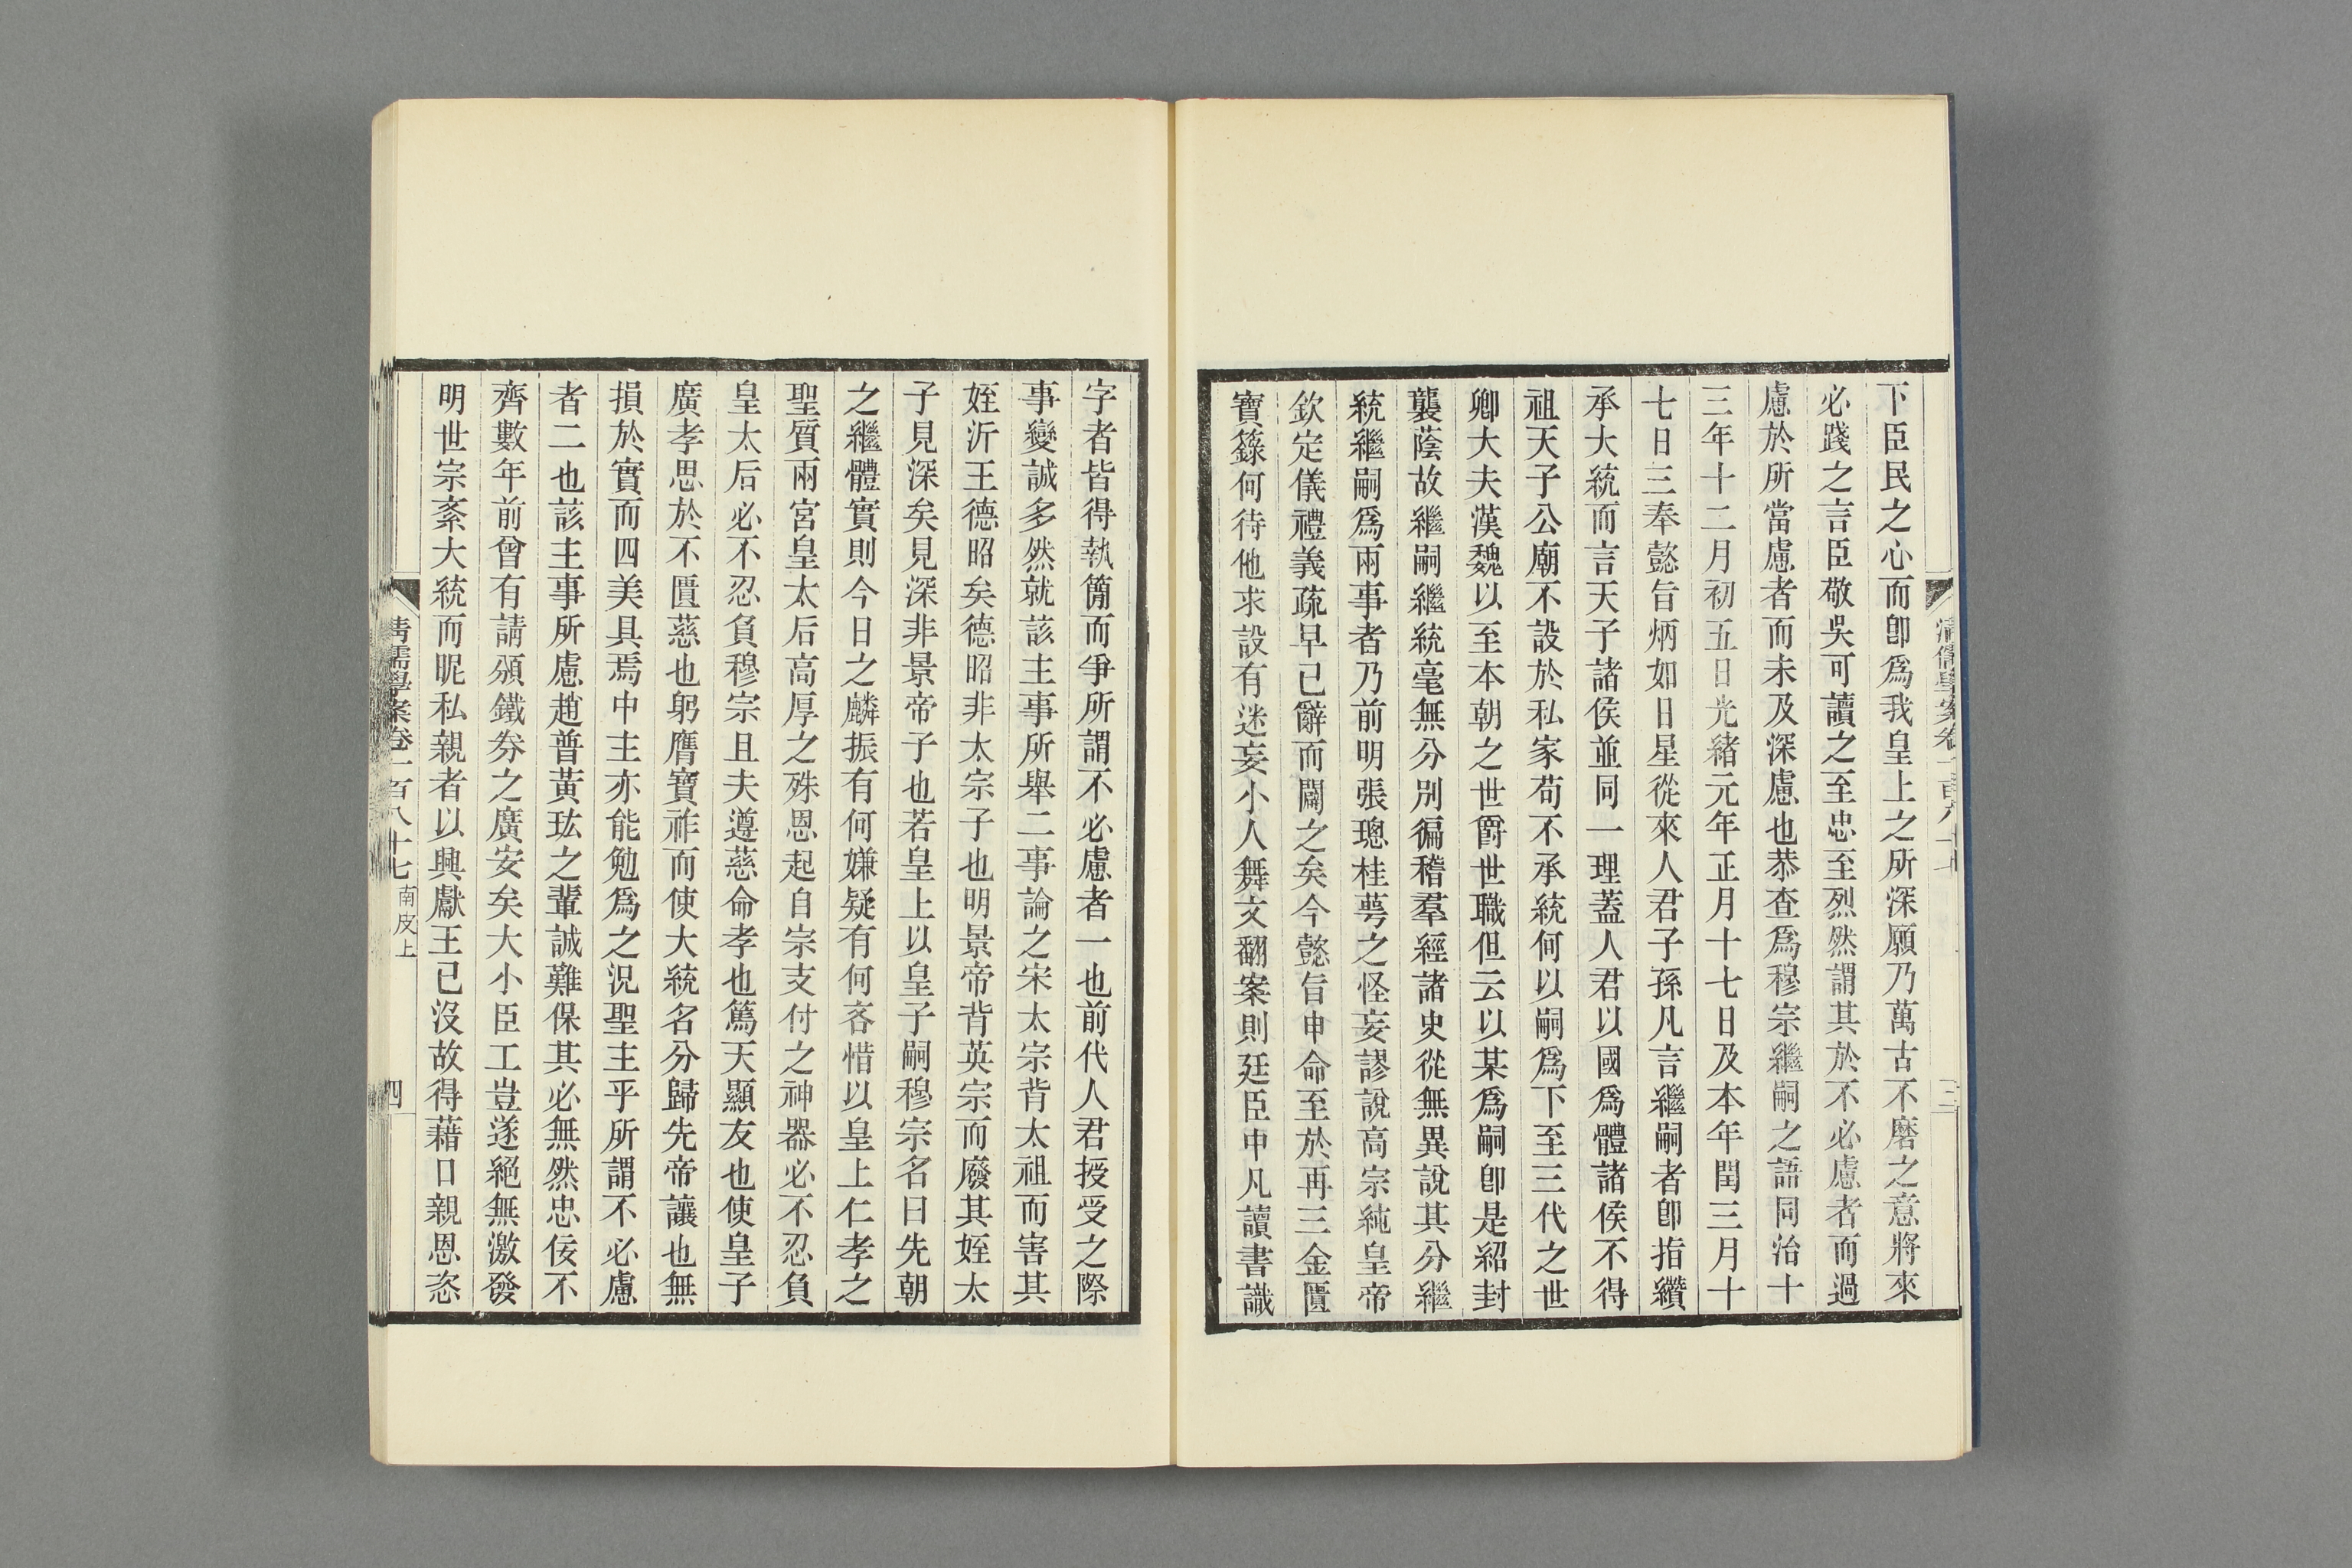 下臣民之心而卽爲我皇上之所深願乃萬古不磨之意將來
必踐之言臣敬吳可讀之至忠至烈然謂其於不必慮者而過
慮於所當慮者而未及深慮也恭查爲穆宗繼嗣之語同治十
三年十二月初五日光緒元年正月十七日及本年閏三月十
七日三奉懿旨炳如日星從來人君子孫凡言繼嗣者卽指纘
承大統而言天子諸侯並同一理蓋人君以國爲體諸侯不得
祖天子公廟不設於私家苟不承統何以嗣爲下至三代之世
卿大夫漢魏以至本朝之世爵世職但云以某爲嗣卽是紹封
襲蔭故繼嗣繼統毫無分別徧稽羣經諸史從無異說其分繼
統繼嗣爲兩事者乃前明張璁桂萼之怪妄謬說高宗純皇帝
欽定儀禮義疏早已辭而闢之矣今懿旨申命至於再三金匱
寶籙何待他求設有迷妄小人舞文翻案則廷臣中凡讀書識
字者皆得執簡而爭所謂不必慮者一也前代人君授受之際
事變誠多然就該主事所舉二事論之宋太宗背太祖而害其
姪沂王德昭矣德昭非太宗子也明景帝背英宗而廢其姪太
子見深矣見深非景帝子也若皇上以皇子嗣穆宗名曰先朝
之繼體實則今日之麟振有何嫌疑有何吝惜以皇上仁孝之
聖質兩宮皇太后高厚之殊恩起自宗支付之神器必不忍負
皇太后必不忍負穆宗且夫遵慈命孝也篤天顯友也使皇子
廣孝思於不匱慈也躬膺寶祚而使大統名分歸先帝讓也無
損於實而四美具焉中主亦能勉爲之況聖主乎所謂不必慮
者二也該主事所慮趙普黃玹之輩誠難保其必無然忠佞不
齊數年前曾有請頒鐵券之廣安矣大小臣工豈遂絕無激發
明世宗紊大統而昵私親者以興獻王已沒故得藉口親恩恣
清儒學案卷一百八十七 南皮上
四